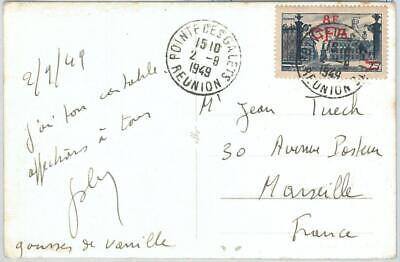 2/9/49
j'ai ton cartable
affections à tous
gousses de vanille
POINTE DES GALETS
15 10
2 - 9
1949
REUNION
8F
CFA
1949
REUNION
Mr Jean Tuech
30 Avenue Pasteur
Marseille
France